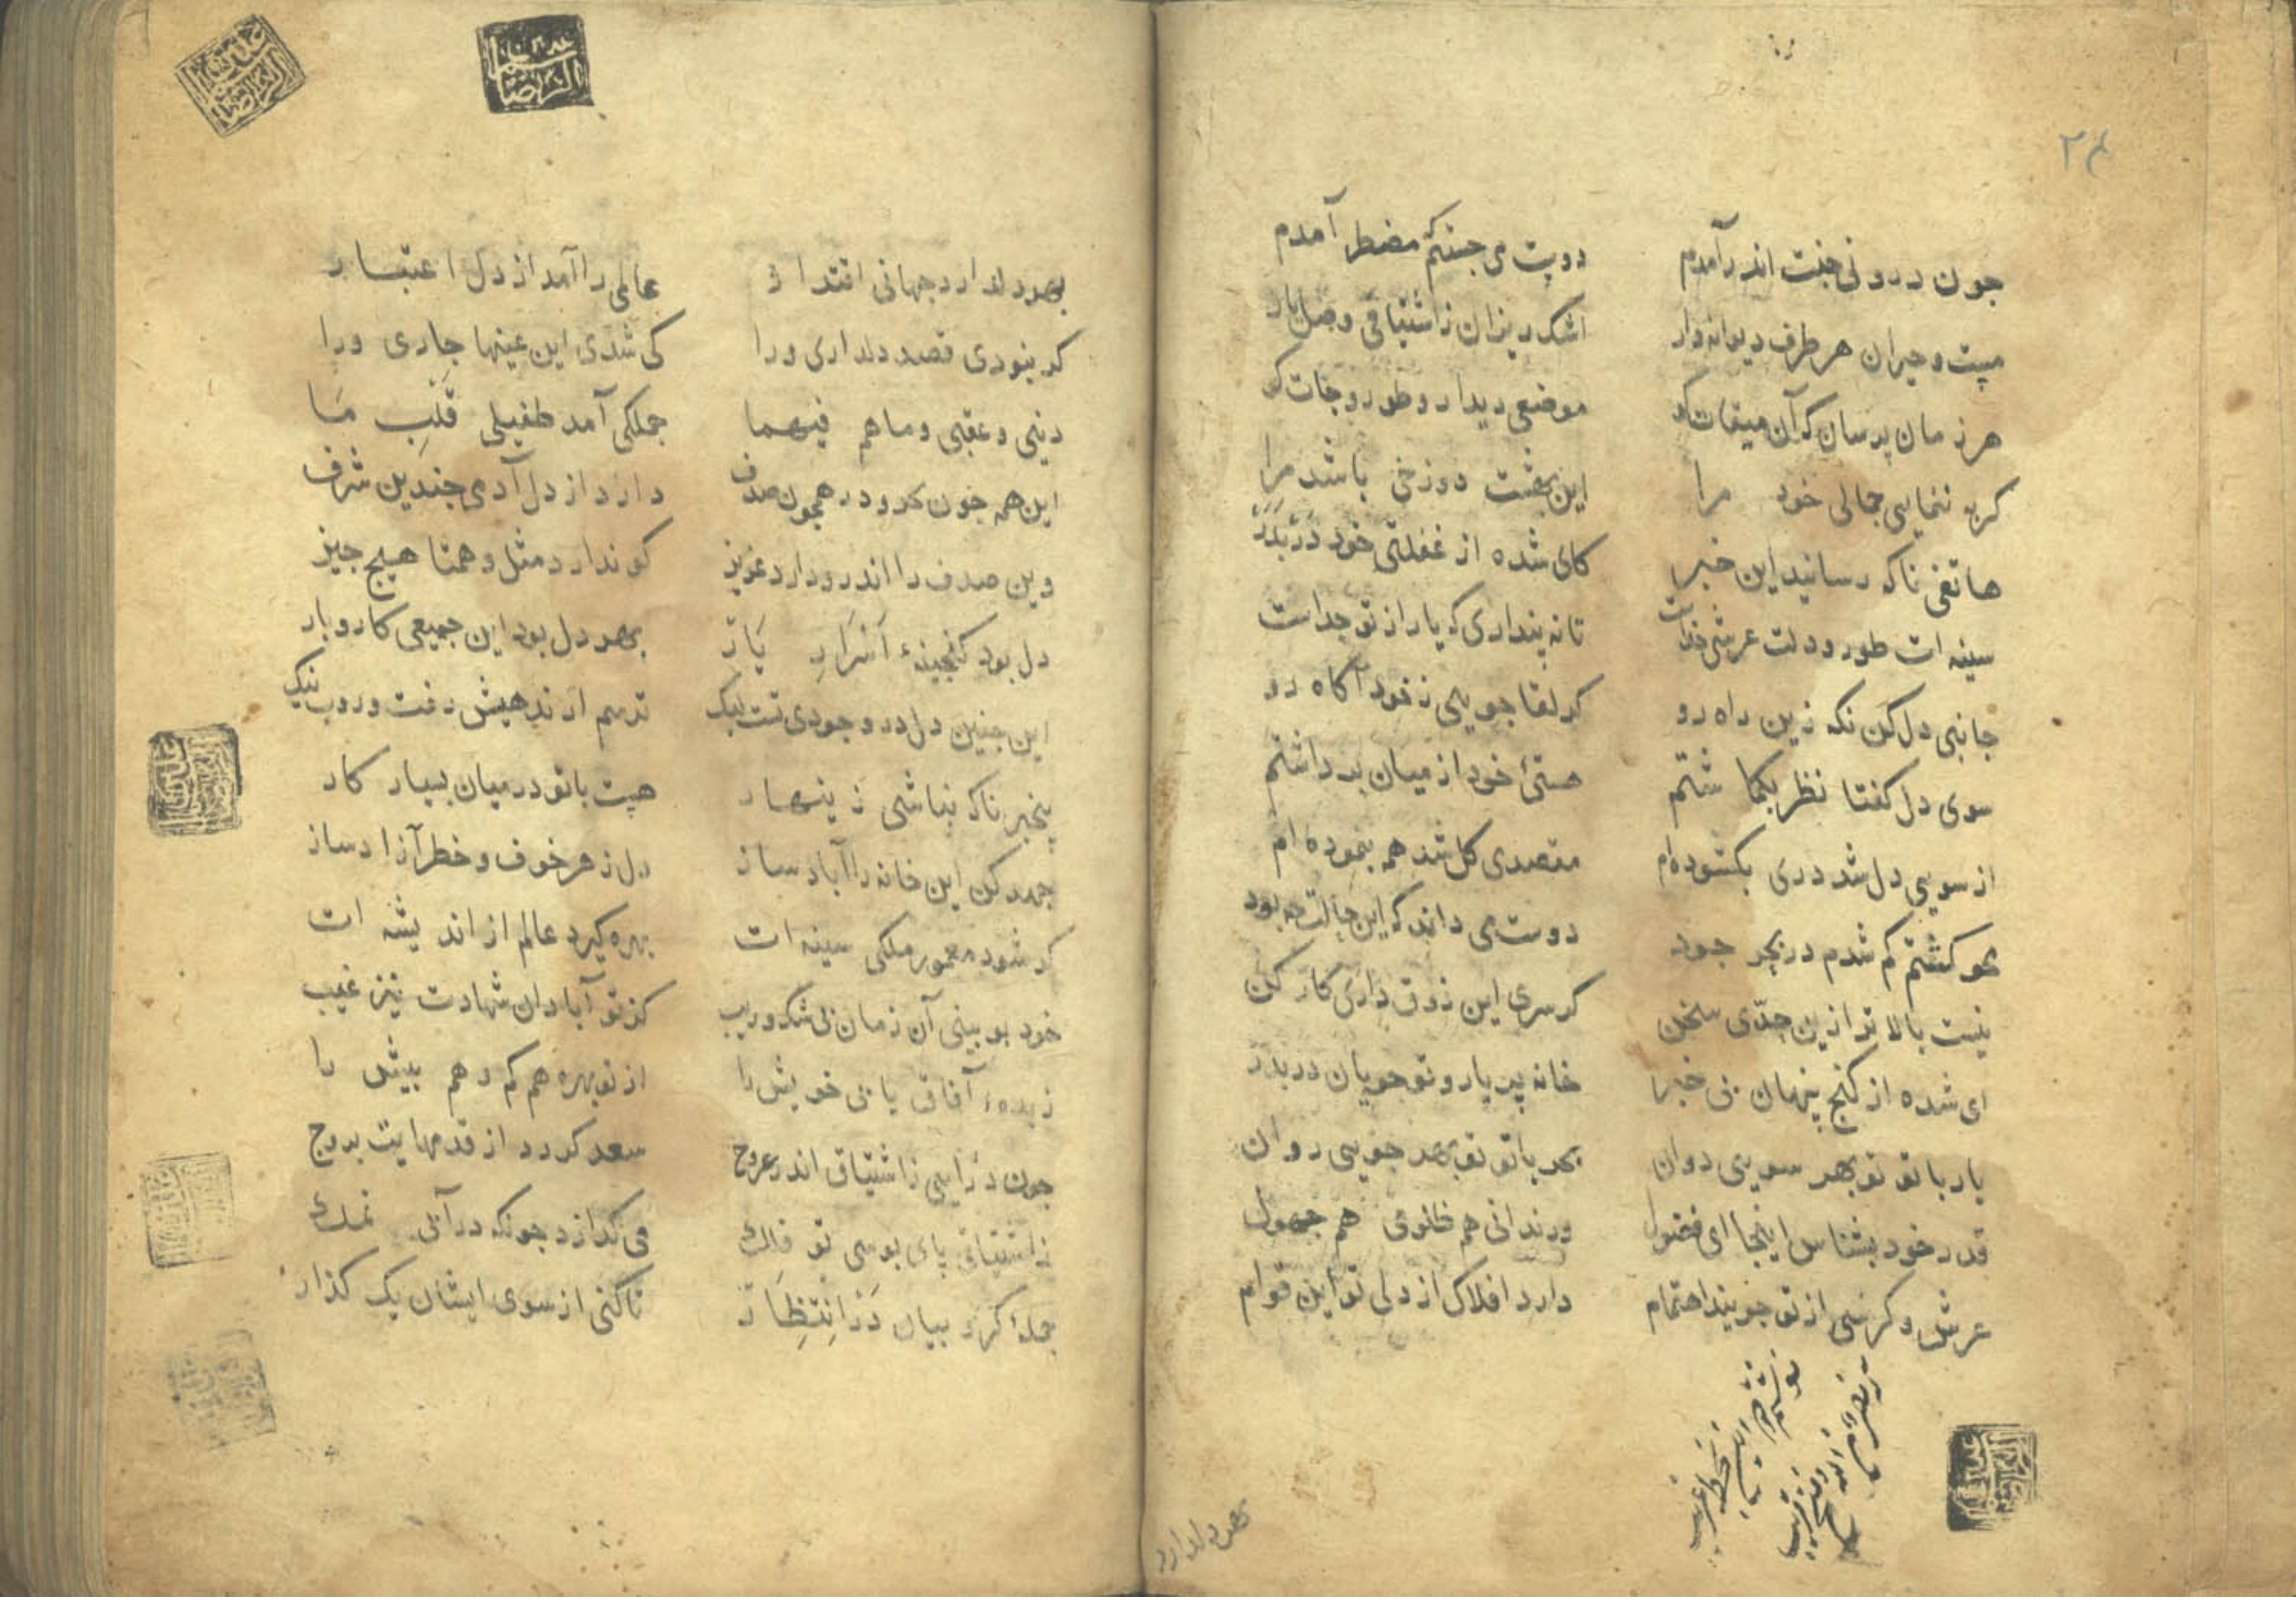 ۲۴
جون درونی جنت اندر آمدم دوست می جستم مضطر آمدم
مست و حیران هر طرف دیوانه وار اشک ریزان زاشتیاقی وصل یار
هر زمان پرسان که آن میقات کو موضعی دیدار و طور و جات کو
کر نه ننمایی جمالی خود مرا این بهشت دوزخی باشد مرا
هاتفی ناکه رسانید این خبر کای شده از غفلتی خود دَرْبَدَرْ
سینه ات طور و دلت عرشی خداست تا نه پنداری که یار از تو جداست
جانبی دل کن نکه زین راه رو کر لقا جویی ز خود آکاه رو
سوی دل کفتا نظر بکماشتم هستیٔ خود از میان برداشتم
از سویی دل شد دری بکشوده ام مقصدی کل شد همه بنموده ام
محو کشتم کم شدم در بحر جود دوست می داند که این حالت چه بود
نیست بالاتر ازین جدّی سخن کر سری این ذوق داری کار کن
ای شده از کنج پنهان بی خبر خانه پر یار و تو جویان دربدر
یار با تو تو بهر سویی دوان بحر با تو تو بهر جویی روان
قدر خود بشناس اینجا ای فضول ور ندانی هم ظلومی هم جهول
عرش و کرسی از تو جویند اهتمام دارد افلاک از دلی تو این قوام
نصر من الله وفتح قریب
بهر دلدارد
بهر دلدارد جهانی اقتدار عالمی را آمد از دل اعتبار
کر نبودی قصد دلداری ورا کی شدی این عینها جاری ورا
دینی و عقبی و ما هم فیهما جملکی آمد طفیلی قَلْبِ مَا
این همه جون در همجون صدف دارد از دل آدمی جندین شرف
وین صدف را اندرو دارد عزیز کو ندارد مثل و همتا هیج جیز
دل بود کنجینهٔ اَسْرَارِ یَارْ بهر دل بود این جمیعی کار و بار
این جنین دل در وجودی تست لیک ترسم ار ندهیش رفت و روب نیک
بیخبر ناکه نباشی زینهار هست با تو در میان بسیار کار
جهد کن این خانه را آباد ساز دل ز هر خوف و خطر آزاد ساز
کر شود معمور ملکی سینه ات بهره کیرد عالم از اندیشه ات
خود بو بینی آن زمان بی شک و ریب کز تو آبادان شهادت نیز غیب
زبدهٔ آفاق یابی خویش را از تو بهره هم کم و هم بیش را
جون درآیی زاشتیاق اندر عروج سعد کردد از قدمهایت بروج
زاشتیاق پای بوسی تو فلک می کدازد جونکه در آبی نمک
جملهٔ کروبیان دَرْ اِنْتِظَارْ تا کنی از سوی ایشان یک کذار